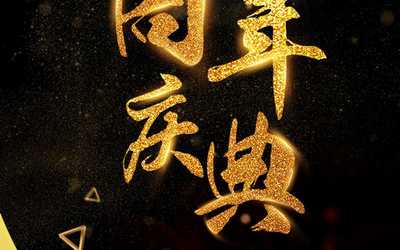 周年
庆典